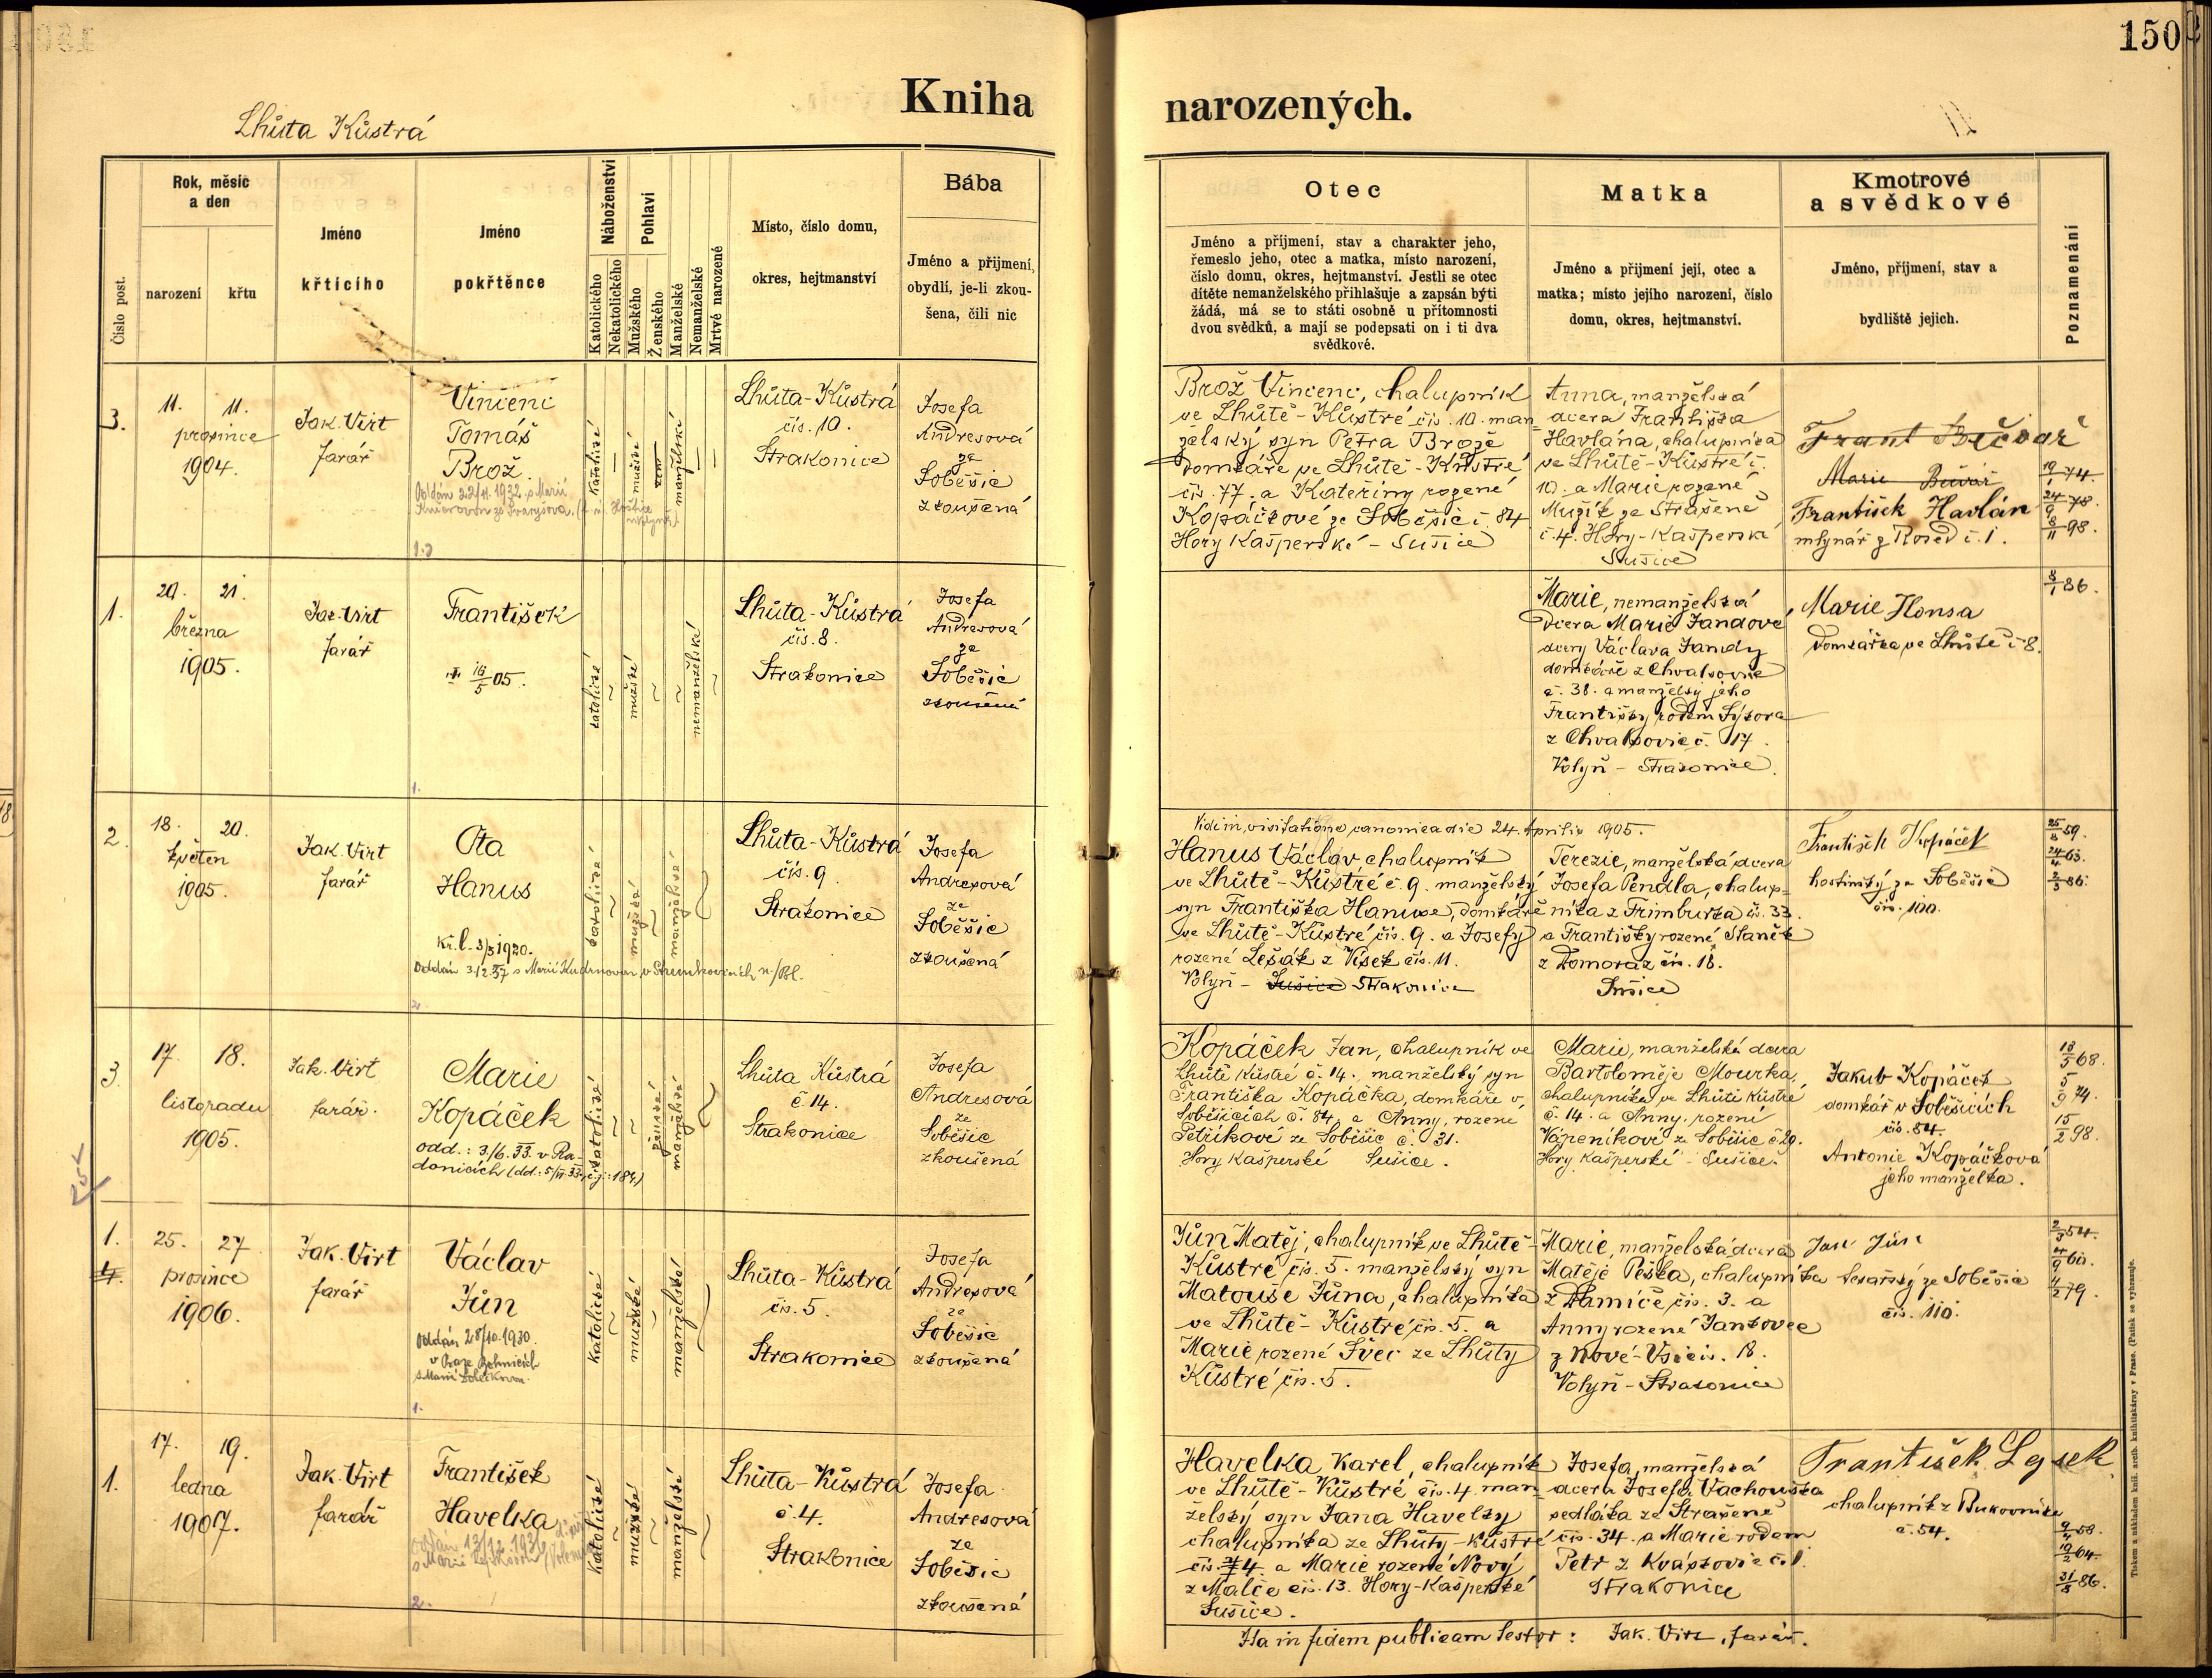 150
Kniha narozených.
Lhůta Kůstrá
Číslo post.
Rok, měsíc
a den
narození
křtu
Jméno
křtícího
Jméno
pokřtěnce
Náboženství
Katolického
Nekatolického
Pohlaví
Mužského
Ženského
Manželské
Nemanželské
Mrtvě narozené
Místo, číslo domu,
okres, hejtmanství
Bába
Jméno a příjmení,
obydlí, je-li zkou-
šena, čili nic
Otec
Jméno a příjmení, stav a charakter jeho,
řemeslo jeho, otec a matka, místo narození,
číslo domu, okres, hejtmanství. Jestli se otec
dítěte nemanželského přihlašuje a zapsán býti
žádá, má se to státi osobně u přítomnosti
dvou svědků, a mají se podepsati on i ti dva
svědkové.
Matka
Jméno a příjmení její, otec a
matka; místo jejího narození, číslo
domu, okres, hejtmanství.
Kmotrové
a svědkové
Jméno, příjmení, stav a
bydliště jejich.
Poznamenání
3.
11. 11.
prosince
1904.
Jak. Virt
farář
Vincenc
Tomáš
Brož
Oddán 22/11. 1932 s Marií
katolické
mužské
manželské
Lhůta-Kůstrá
čís. 10.
Strakonice
Josefa
Andresová
ze
Soběšic
zkoušená
Brož Vincenc, chalupník
ve Lhůtě-Kůstré čís. 10. man
želský syn Petra Brože
domkáře ve Lhůtě-Kůstré
čís. 77. a Kateřiny rozené
Kopáčkové ze Soběšic č. 84
Hory Kašperské - Sušice
Anna, manželská
dcera Františka
Havlána, chalupníka
ve Lhůtě-Kůstré č.
10. a Marie rozené
Mužík ze Strašené
č. 4. Hory-Kašperské
Sušice
Frant Bečvář
Marie Bečvář
František Havlán
mlynář z Rosed č. 1.
19/1 74.
24/9 78.
8/11 98.
1.
20. 21.
března
1905.
Jak. Virt
farář
František
16/5 05.
katolické
mužské
nemanželské
Lhůta-Kůstrá
čís. 8.
Strakonice
Josefa
Andresová
ze
Soběšic
zkoušená
Marie, nemanželská
dcera Marie Jandové
dcery Václava Jandy
domkáře z Chvalšovic
č. 38. a manželky jeho
Františky rodem Sýkora
z Chvalšovic č. 17.
Volyň - Strakonice.
Marie Honsa
domkářka ve Lhůtě č. 8.
8/1 86.
2.
18. 20.
květen
1905.
Jak. Virt
farář
Ota
Hanus
Kř. l. 3/3 1920.
Oddán 3.12.37 s Marií Kudrnovou v Strunkovicích n/Bl.
katolické
mužské
manželské
Lhůta-Kůstrá
čís. 9
Strakonice
Josefa
Andresová
ze
Soběšic
zkoušená
Vidi in visitatione canonica die 24. Aprilis 1905.
Hanus Václav chalupník
ve Lhůtě-Kůstré č. 9. manželský
syn Františka Hanuse, domkáře
ve Lhůtě-Kůstré čís. 9. a Josefy
rozené Lešák z Vísek čís. 11.
Volyň - Sušice Strakonice
Terezie, manželská dcera
Josefa Pendla, chalup-
níka z Frimburka čís. 33.
a Františky rozené Staněk
z Domoraz čís. 18.
Sušice
František Kopáček
hostinský ze Soběšic
čís. 100.
25/8 59.
24/4 63.
2/3 86.
3.
17. 18.
listopadu
1905.
Jak. Virt
farář.
Marie
Kopáček
odd.: 3./6. 33. v Ra-
donicích (dd.: 5/VI 33, čj.: 184)
katolické
ženské
manželské
Lhůta Kůstrá
č. 14.
Strakonice
Josefa
Andresová
ze
Soběšic
zkoušená
Kopáček Jan, chalupník ve
Lhůtě Kůstré č. 14. manželský syn
Františka Kopáčka, domkáře v
Soběšicích č. 84, a Anny, rozené
Petříkové ze Soběšic č. 31.
Hory Kašperské Sušice.
Marie, manželská dcera
Bartoloměje Mourka,
chalupníka ve Lhůtě Kůstré
č. 14. a Anny, rozené
Vápeníkové ze Soběšic č. 29.
Hory Kašperské - Sušice.
Jakub Kopáček
domkář v Soběšicích
čís. 84.
Antonie Kopáčková
jeho manželka.
18/5 68.
5/9 74.
15/2 98.
1.
4.
25. 27
prosince
1906.
Jak. Virt
farář
Václav
Jůn
Oddán 28/10. 1930.
v Praze Bohnicích
katolické
mužské
manželské
Lhůta-Kůstrá
čís. 5.
Strakonice
Josefa
Andresová
ze
Soběšic
zkoušená
Jůn Matěj, chalupník ve Lhůtě-
Kůstré čís. 5. manželský syn
Matouše Jůna, chalupníka
ve Lhůtě-Kůstré čís. 5. a
Marie rozené Švec ze Lhůty
Kůstré čís. 5.
Marie, manželská dcera
Matěje Peška, chalupníka
z Damíče čís. 3. a
Anny rozené Jankovec
z Nové-Vsi čís. 18.
Volyň - Strakonice
Jan Jůn
tesařský ze Soběšic
čís. 110.
2/3 54.
4/9 60.
4/2 79.
1.
17. 19.
ledna
1907.
Jak. Virt
farář
František
Havelka
Oddán 13/12 1936
katolické
mužské
manželské
Lhůta-Kůstrá
č. 4.
Strakonice
Josefa
Andresová
ze
Soběšic
zkoušená
Havelka Karel, chalupník
ve Lhůtě-Kůstré čís. 4. man-
želský syn Jana Havelky
chalupníka ze Lhůty-Kůstré
čís. 4. a Marie rozené Nový
z Malče čís. 13. Hory-Kašperské
Sušice.
Josefa, manželská
dcera Josefa Vachouška
sedláka ze Strašené
čís. 34. a Marie rodem
Petr z Kváskovic č. 1.
Strakonice
František Lysek
chalupník z Bukovníka
č. 54.
9/4 58.
19/2 64.
31/5 86.
Ita in fidem publicam testor: Jak. Virt, farář.
Tiskem a nákladem kníž. arcib. knihtiskárny v Praze. (Patisk se vyhrazuje.